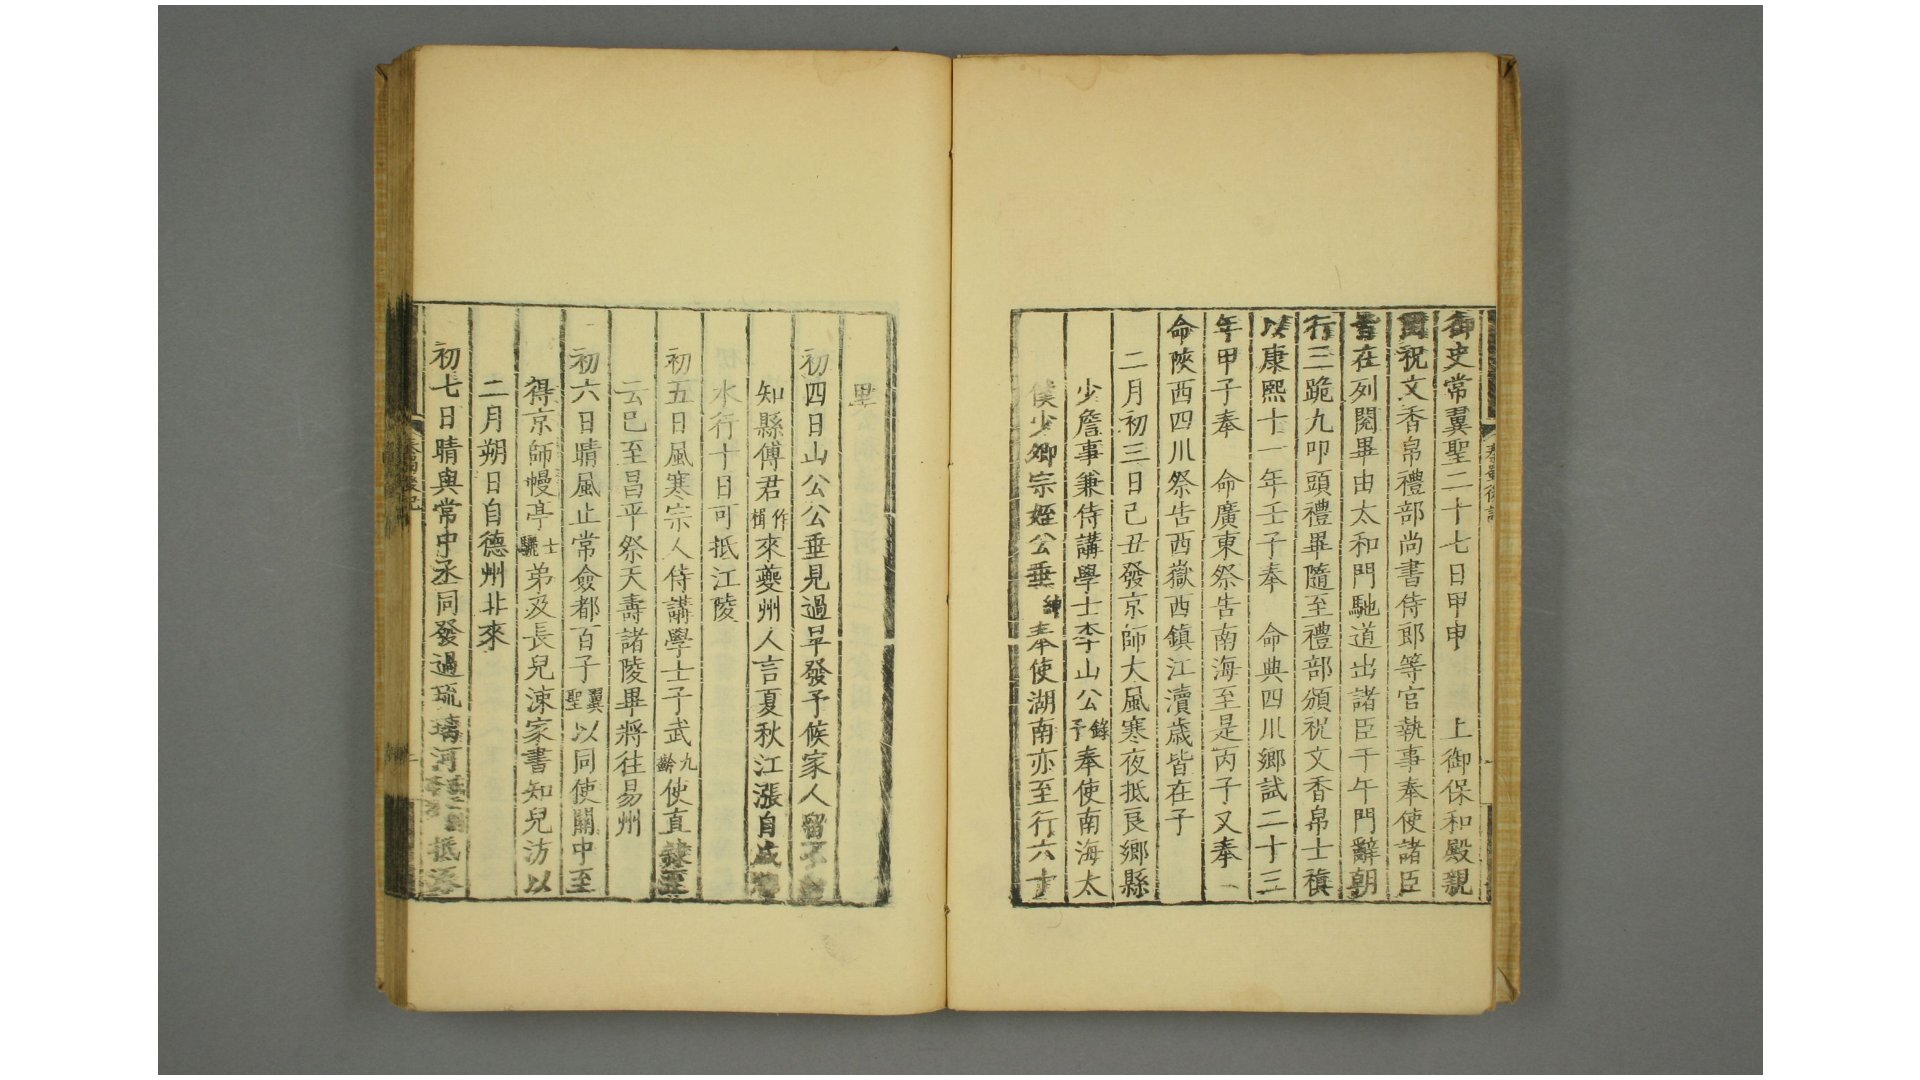 御史常翼聖二十七日甲申　上御保和殿親
閱祝文香帛禮部尚書侍郎等官執事奉使諸臣
皆在列閱畢由太和門馳道出諸臣于午門辭朝
行三跪九叩頭禮畢隨至禮部頒祝文香帛士禛
以康熙十一年壬子奉　命典四川鄉試二十三
年甲子奉　命廣東祭告南海至是丙子又奉
命陝西四川祭告西嶽西鎮江瀆歲皆在子
二月初三日己丑發京師大風寒夜抵良鄉縣
少詹事兼侍講學士李山公錄予奉使南海太
僕少卿宗姪公垂紳奉使湖南亦至行六十
里
初四日山公公垂見過早發予候家人留
知縣傅君作楫來夔州人言夏秋江漲自
水行十日可抵江陵
初五日風寒宗人侍講學士子武九齡使直隸至
云已至昌平祭天壽諸陵畢將往易州
初六日晴風止常僉都百子翼聖以同使關中至
得京師幔亭士驪弟及長兒涷家書知兒汸以
二月朔日自德州北來
初七日晴與常中丞同發過琉璃河抵涿